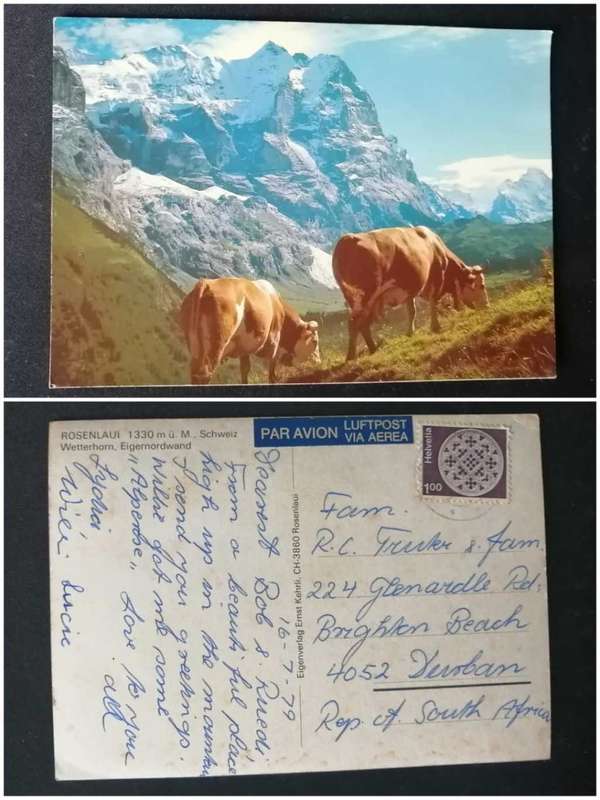 ROSENLAUI 1330 m ü. M., Schweiz
Wetterhorn, Eigernordwand
PAR AVION LUFTPOST
VIA AEREA
Helvetia
100
16-7-79
Dearest Bob & Ruedi
From a beautiful place
high up in the mountain
I send you greetings.
Willi got me some
"Alperose" Love to you
all
Lydia
Willi Lucie
Eigenverlag Ernst Kehrli, CH-3860 Rosenlaui
Fam.
R. C. & fam.
224 Glenardle Rd:
Brighton Beach
4052 Durban
Rep. of South Africa